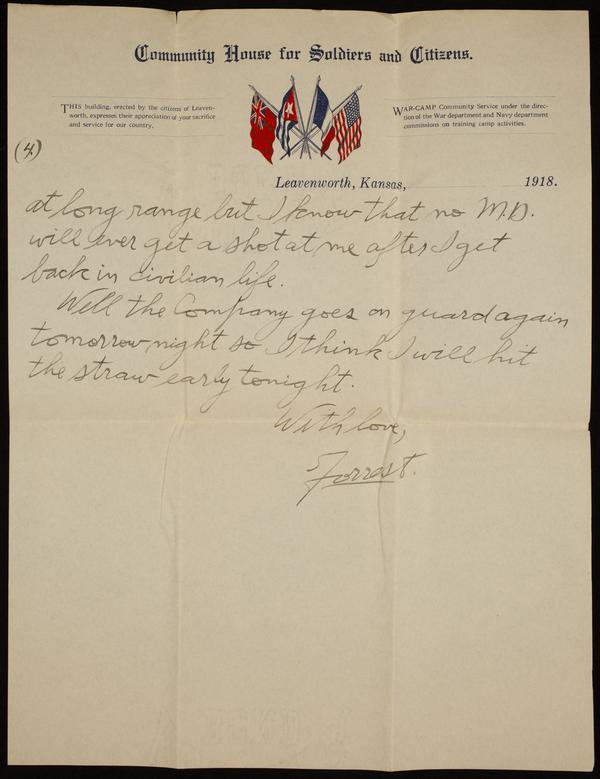 Community House for Soldiers and Citizens.
THIS building, erected by the citizens of Leaven-
worth, expresses their appreciation of your sacrifice
and service for our country.
WAR-CAMP Community Service under the direc-
tion of the War department and Navy department
commissions on training camp activities.
(4)
Leavenworth, Kansas, 1918.
at long range but I know that no M.D.
will ever get a shot at me after I get
back in civilian life.
Well the Company goes on guard again
tomorrow night so I think I will hit
the straw early tonight.
With love,
Forrest.